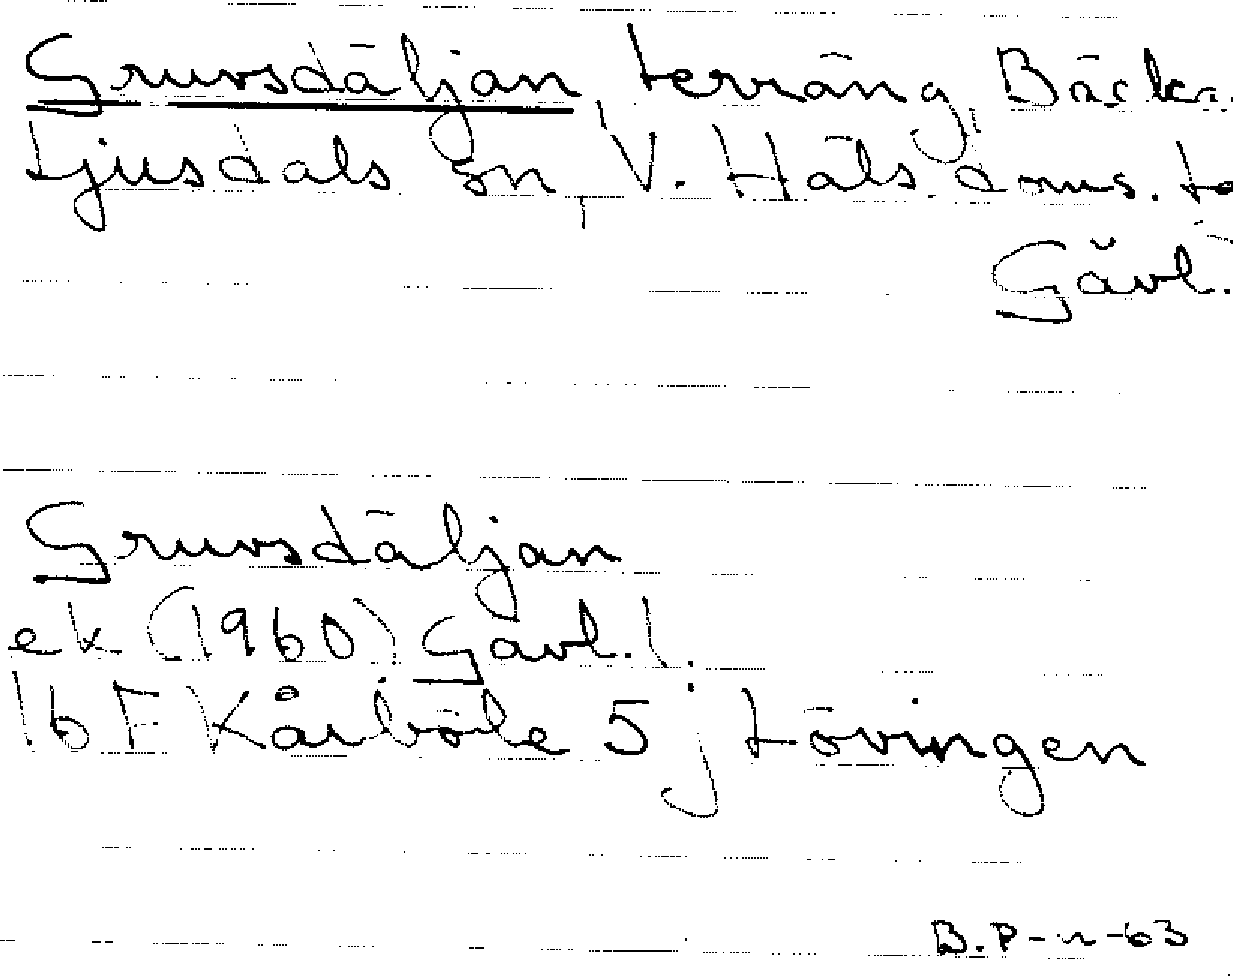 Gruvsdäljan, terräng, Bäcka.
Ljusdals sn, V. Häls. doms.
Gävl.
Gruvsdäljan
ek (1960) Gävl. l.
16F Kårböle 5 j Lövingen
B.P-n-63